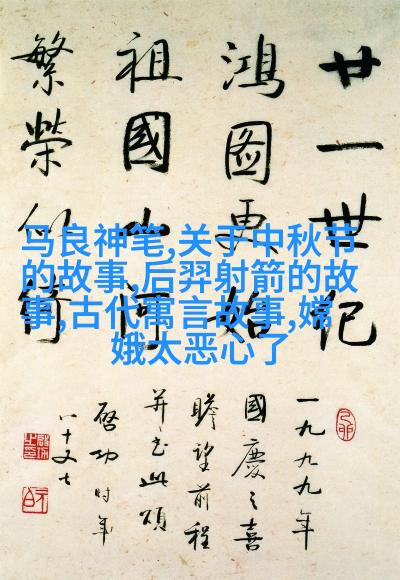 廿一世纪
鸿图更始
祖國山河
繁榮似
一九九九年
國慶之喜
瞻望前程
并书此颂
启功时年
八十又七
马良神笔,关于中秋节
的故事,后羿射箭的故
事,古代寓言故事,嫦
娥太恶心了